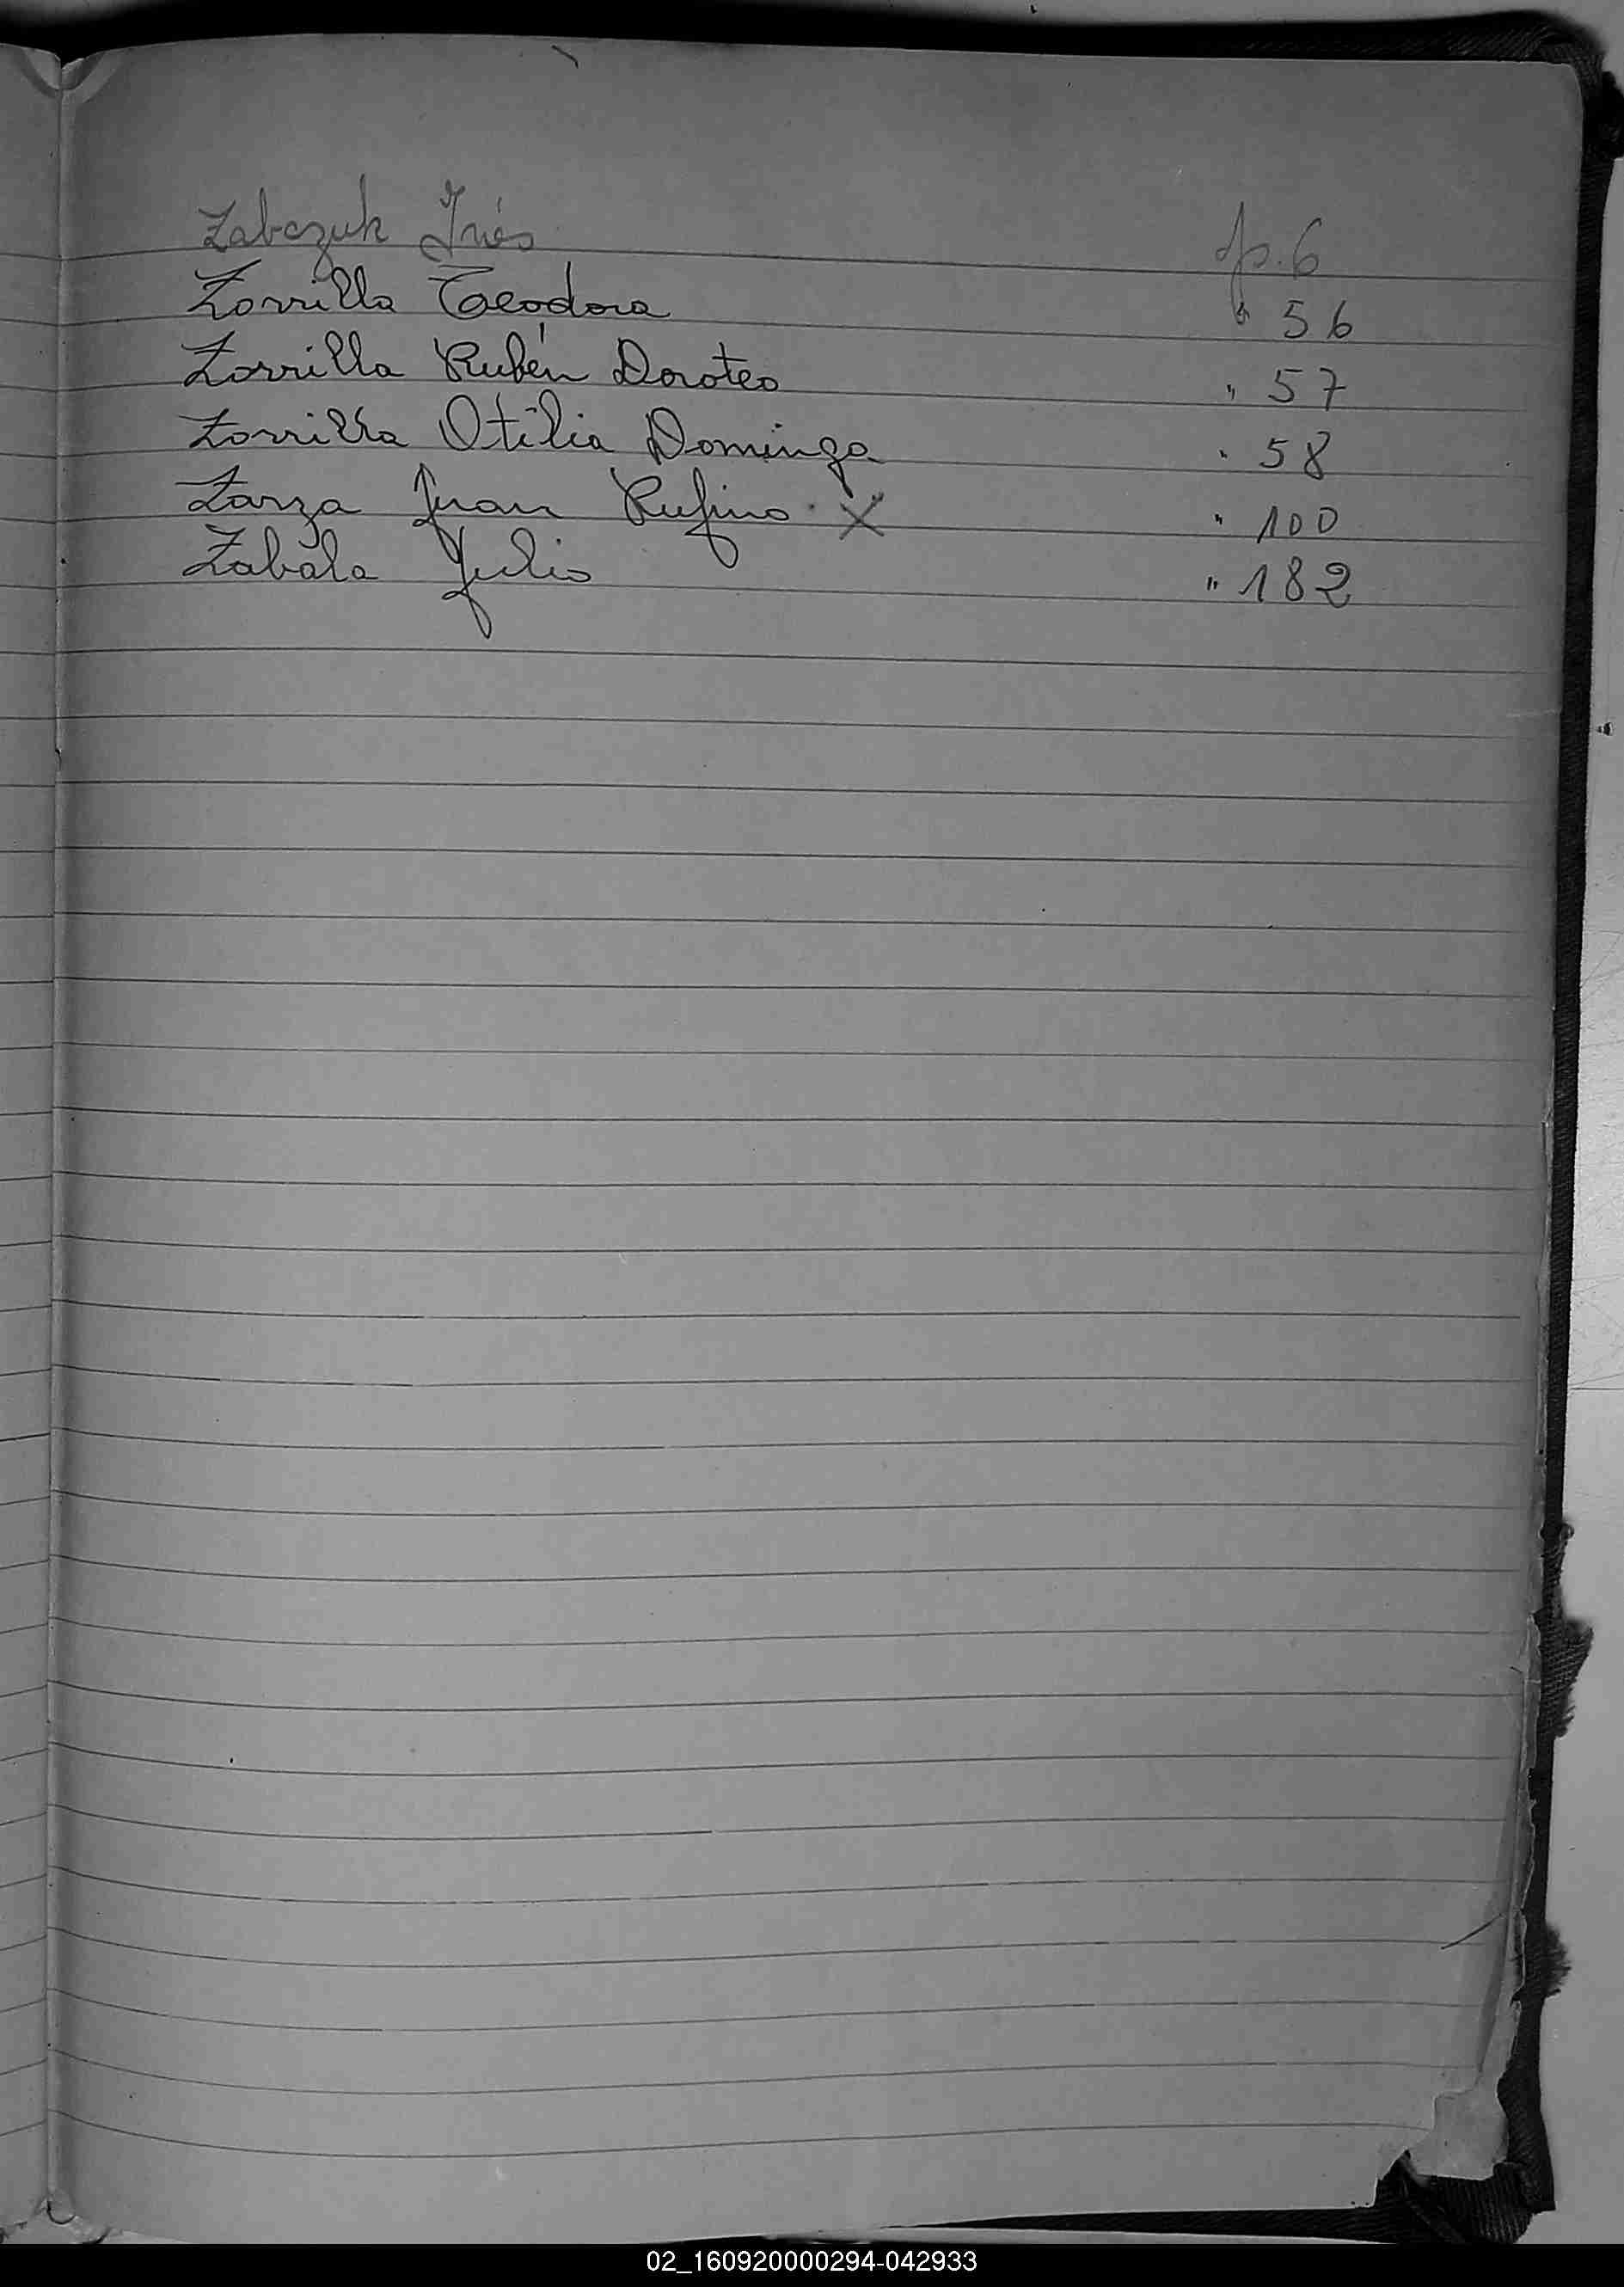 Zabczuk Inés p. 6
Zorrilla Teodora " 56
Zorrilla Rubén Doroteo " 57
Zorrilla Otilia Dominga " 58
Zarza Juan Rufino X " 100
Zabala Julio " 182
02_160920000294-042933